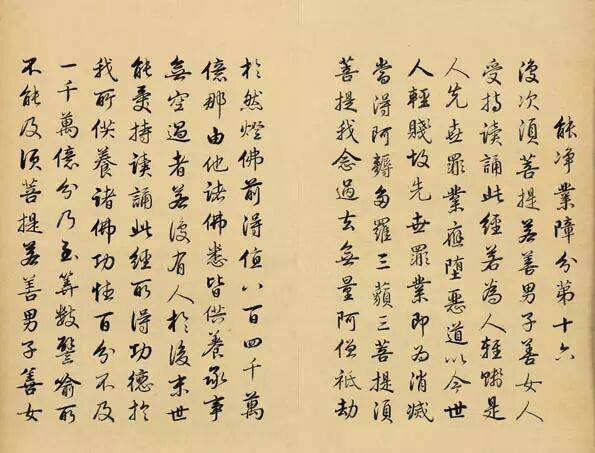 能净業障分第十六
復次須菩提若善男子善女人
受持读誦此經若為人輕賤是
人先世罪業應堕惡道以今世
人輕賤故先世罪業即為消滅
當得阿耨多羅三藐三菩提須
菩提我念過去無量阿僧祇劫
於然燈佛前得值八百四千萬
億那由他諸佛悉皆供養承事
無空過者若復有人於後末世
能受持读誦此經所得功德於
我所供養諸佛功德百分不及
一千萬億分乃至算數譬喻所
不能及須菩提若善男子善女